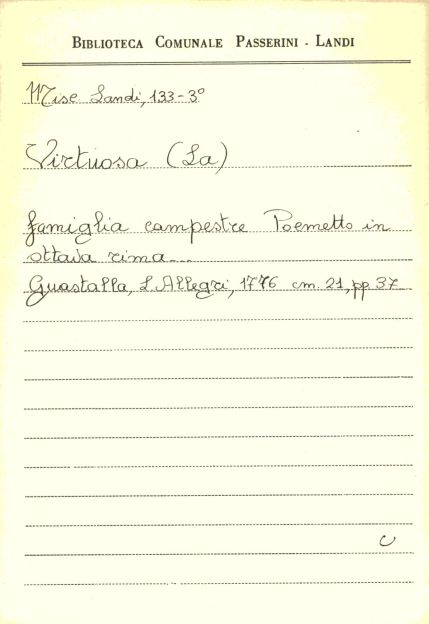 BIBLIOTECA COMUNALE PASSERINI - LANDI
Misc Landi, 133-3°
Virtuosa (La)
famiglia campestre Poemetto in
ottava rima...
Guastalla, L Allegri, 1776 cm. 21, pp. 37
C